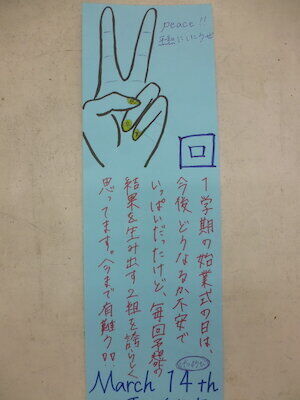 peace!!
回
1学期の始業式の日は、
今後どうなるか不安で
いっぱいだったけど、毎回予想外の
結果を生み出す2組を誇らしく
思ってます。今まで有難う!!
March 14th